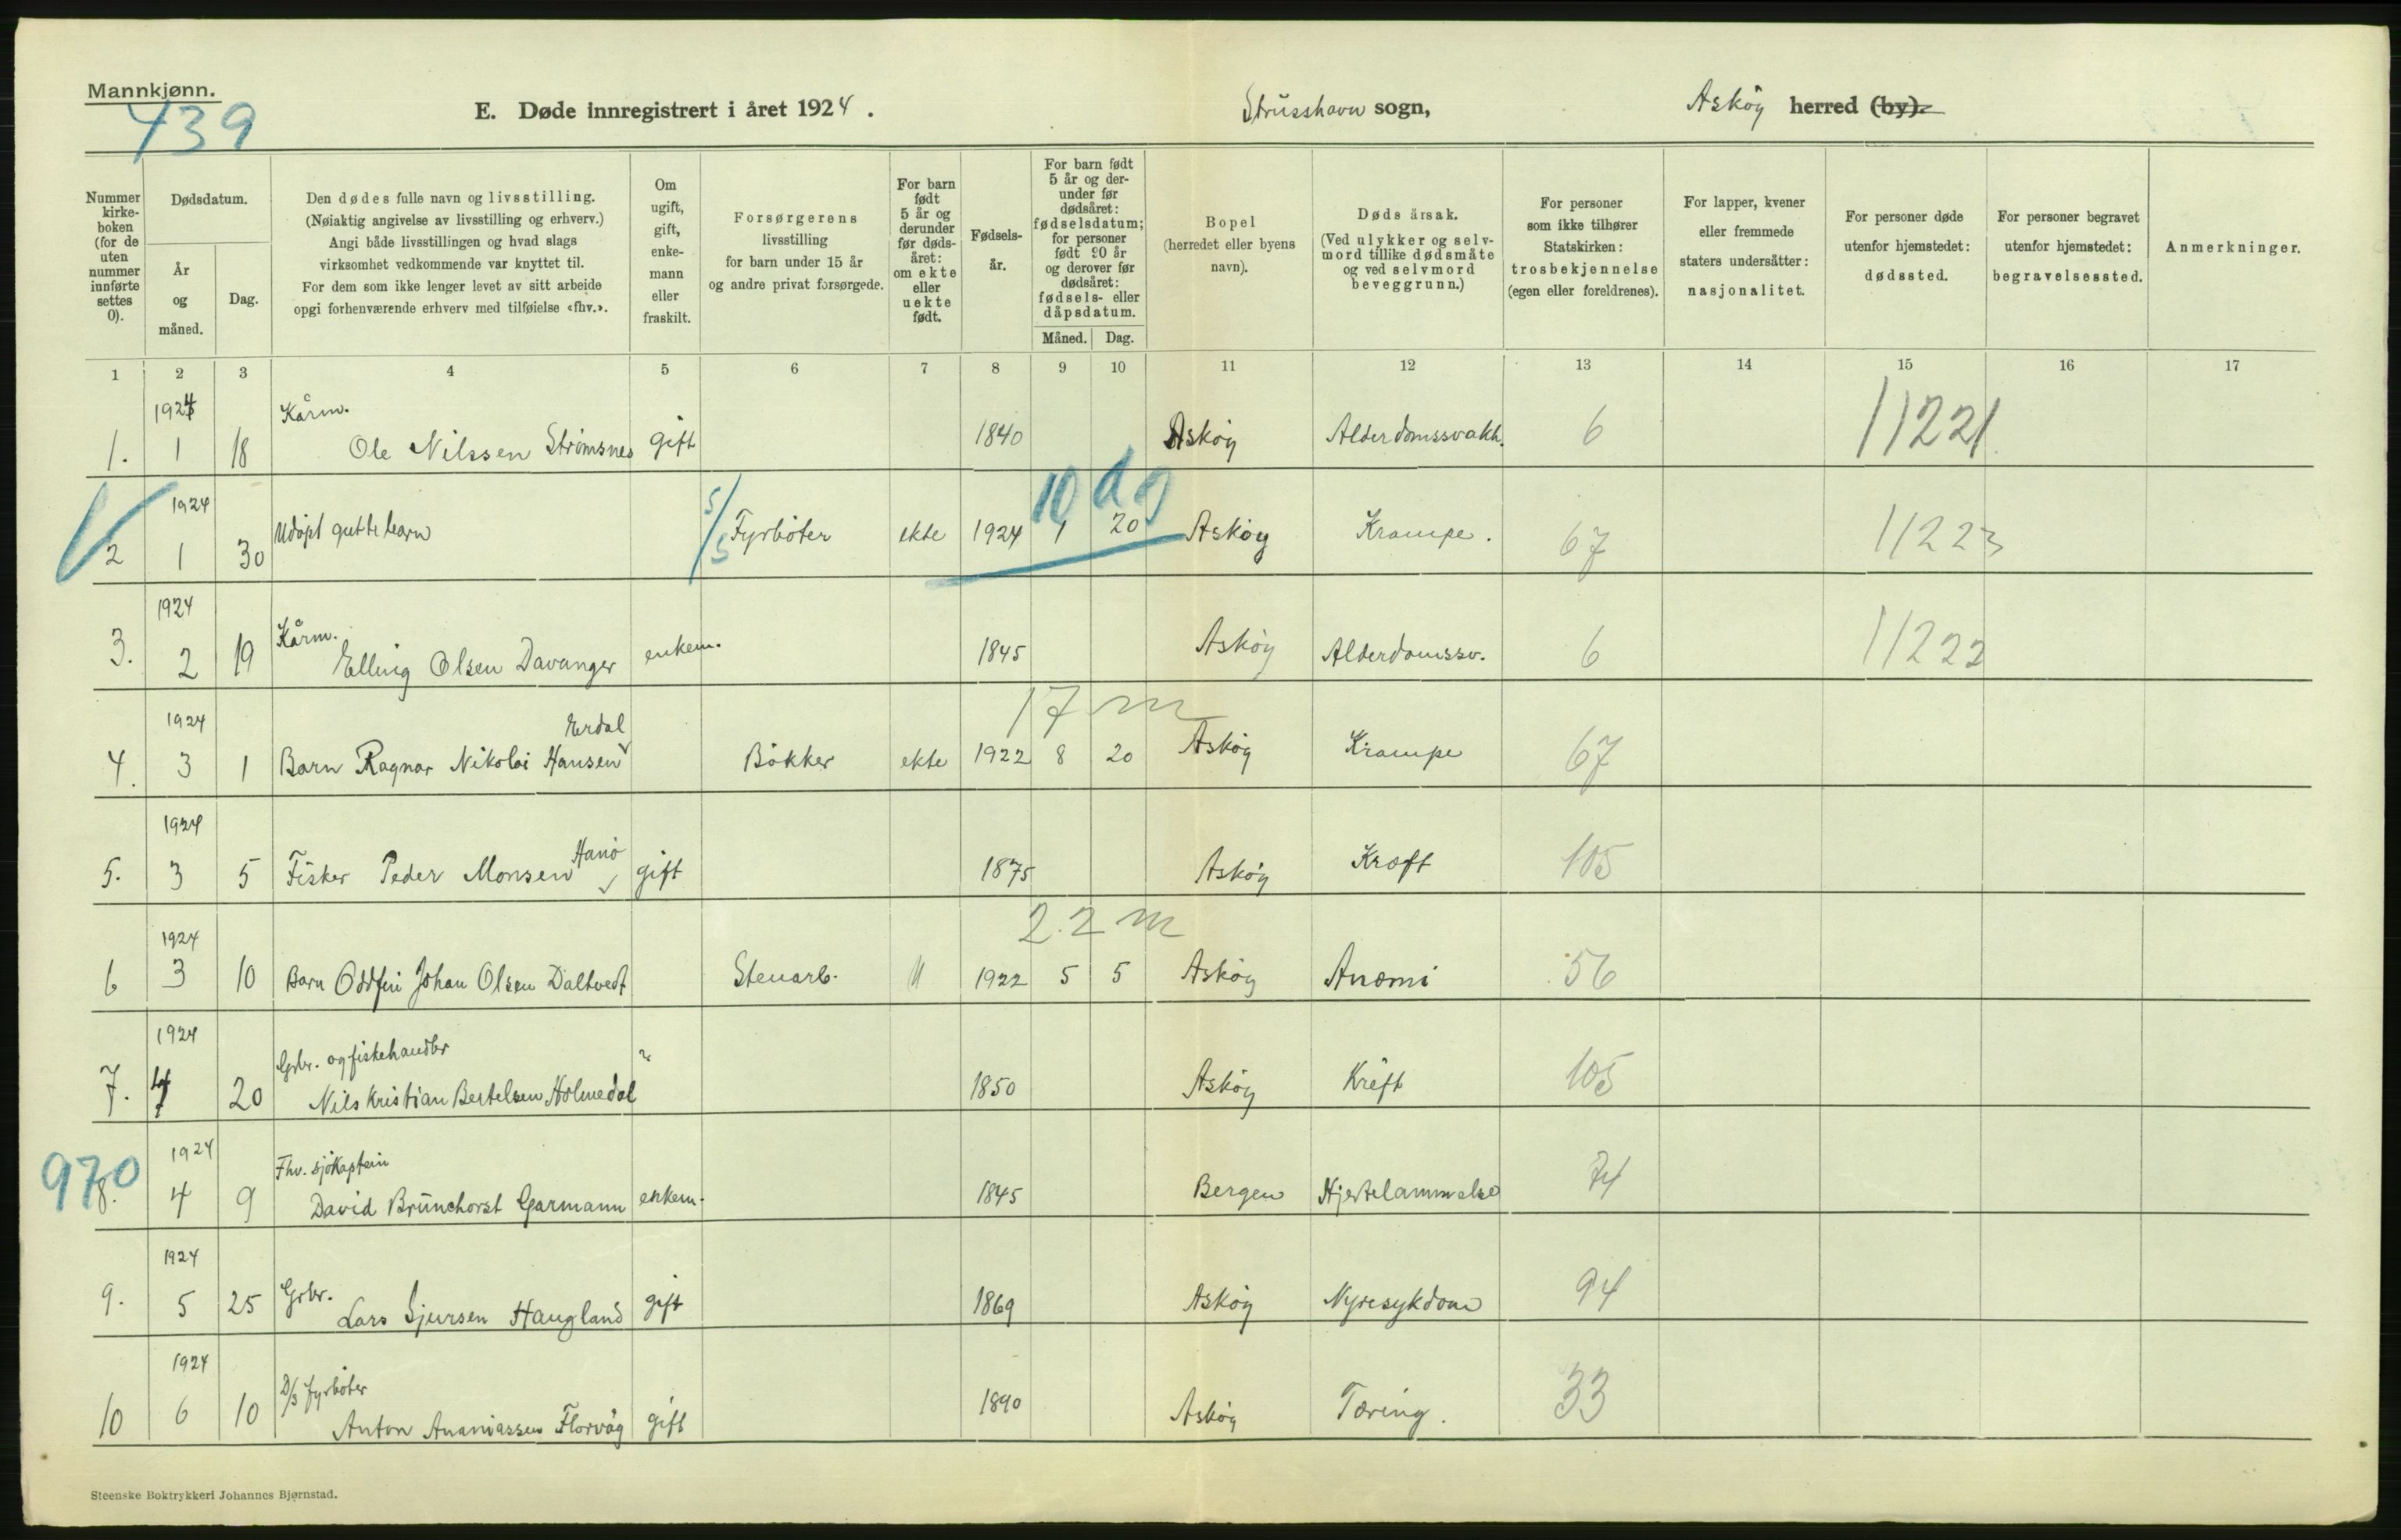 Mannkjønn.
439
E. Døde innregistrert i året 1924.
Strusshavn sogn,
Askøy herred (by).
Nummer kirkeboken (for de uten nummer innførte settes 0).
Dødsdatum.
År og måned.
Dag.
Den dødes fulle navn og livsstilling.
(Nøiaktig angivelse av livsstilling og erhverv.)
Angi både livsstillingen og hvad slags
virksomhet vedkommende var knyttet til.
For dem som ikke lenger levet av sitt arbeide
opgi forhenværende erhverv med tilføielse «fhv.».
Om ugift, gift, enkemann eller fraskilt.
Forsørgerens
livsstilling
for barn under 15 år
og andre privat forsørgede.
For barn født 5 år og derunder før dødsåret: om ekte eller uekte født.
Fødselsår.
For barn født 5 år og derunder før dødsåret: fødselsdatum; for personer født 90 år og derover før dødsåret: fødsels- eller dåpsdatum.
Måned. Dag.
Bopel
(herredet eller byens
navn).
Døds årsak.
(Ved ulykker og selvmord tillike dødsmåte
og ved selvmord
beveggrunn.)
For personer
som ikke tilhører
Statskirken:
trosbekjennelse
(egen eller foreldrenes).
For lapper, kvener
eller fremmede
staters undersåtter:
nasjonalitet.
For personer døde
utenfor hjemstedet:
dødssted.
For personer begravet
utenfor hjemstedet:
begravelsessted.
Anmerkninger.
1 2 3 4 5 6 7 8 9 10 11 12 13 14 15 16 17
1924 Kårm.
1. 1 18 Ole Nilssen Strømsnes gift 1840 Askøy Alderdomssvakh. 6 11221
10 dg
1924 5/5
2 1 30 Udøpt guttebarn Fyrbøter ekte 1924 1 20 Askøy Krampe. 67 11223
1924 Kårm.
3. 2 19 Elling Olsen Davanger enkem. 1845 Askøy Alderdomssv. 6 11222
17 m
1924 Erdal
4. 3 1 Barn Ragnar Nikolai Hansen Bøkker ekte 1922 8 20 Askøy Krampe 67
1924 Hanø
5. 3 5 Fisker Peder Monsen gift 1875 Askøy Kræft 105
22 m
1924
6 3 10 Barn Oddfin Johan Olsen Daltvedt Stenarb. 1922 5 5 Askøy Anæmi 56
1924 Grbr. og fiskehandler
7. 4 20 Nils Kristian Bertelsen Holmedal " 1850 Askøy Kreft 105
970
1924 Fhv. sjøkaptein
8. 4 9 David Brunchorst Garmann enkem. 1845 Bergen Hjertelammelse 74
1924 Grbr.
9. 5 25 Lars Sjursen Haugland gift 1869 Askøy Nyresykdom 94
1924 D/S fyrbøter
10 6 10 Anton Ananiassen Florvåg gift 1890 Askøy Tæring. 33
Steenske Boktrykkeri Johannes Bjørnstad.